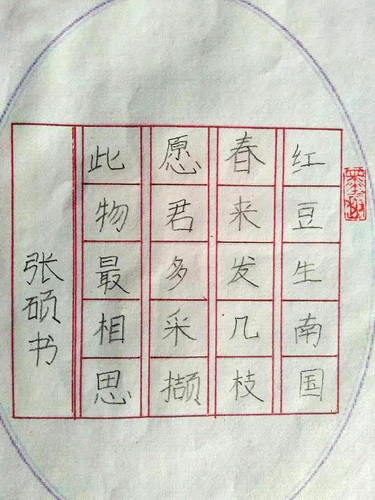 红豆生南国
春来发几枝
愿君多采撷
此物最相思
张硕书